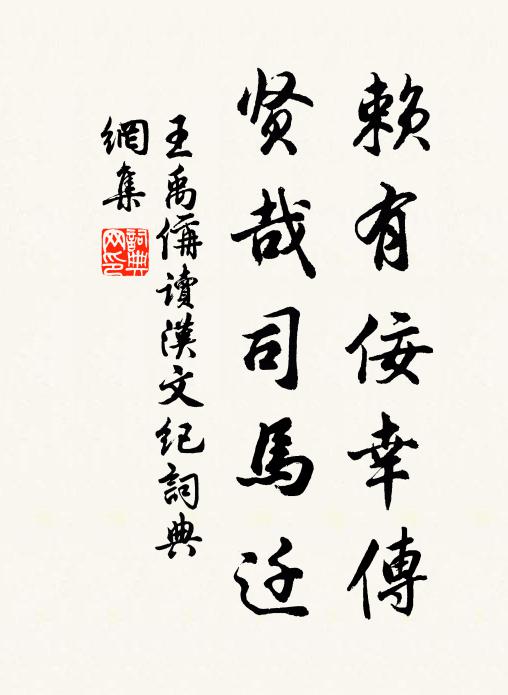 赖有佞幸傳
贤哉司馬迁
王禹偁讀漢文紀詞典
網集
詞典网印